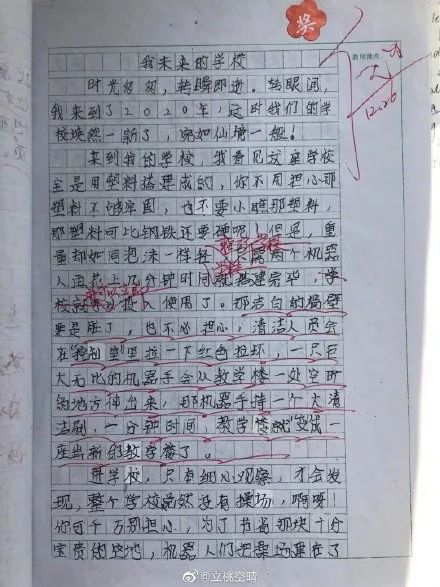 奖
教师批改:
12.26
我未来的学校
时光匆匆，转瞬即逝。转眼间，
我来到了2020年，这时我们的学
校焕然一新了，宛如仙境一般！
来到我的学校，我看见这座学校
全是用塑料搭建成的，你不用担心那
塑料不够牢固，也不要小瞧那塑料，
那塑料可比钢铁还要硬呢！但是，重
量却如同泡沫一样轻，只需两个机器
人再花上几分钟时间就搭建完毕，学
校就可以投入使用了。那洁白的墙壁
要是脏了，也不必担心，清洁人员会
在控制室里拉一下红色拉环，一只巨
大无比的机器手会从教学楼一处空所
的地方伸出来，那机器手持一个大清
洁刷，一分钟时间，教学楼就变成一
座崭新的教学楼了。
进学校，只有细心观察，才会发
现，整个学校竟然没有操场，啊呀！
你可千万别担心，为了节省那块十分
宝贵的空地，机器人们把操场建在了
@立桃空晴